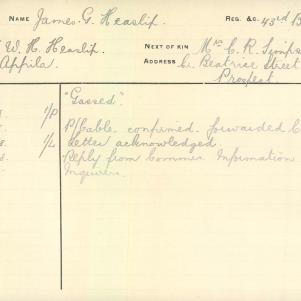 NAME James. G. Heaslip. REG. &C. 43rd B
W. H. Heaslip. NEXT OF KIN Mrs C. R. Simps
Appila. ADDRESS Beatrice Street
Prospect.
"Gassed".
1/P P/Cable. confirmed. forwarded C
1/L Letter acknowledged.
Reply from Common Information
Inquirers.